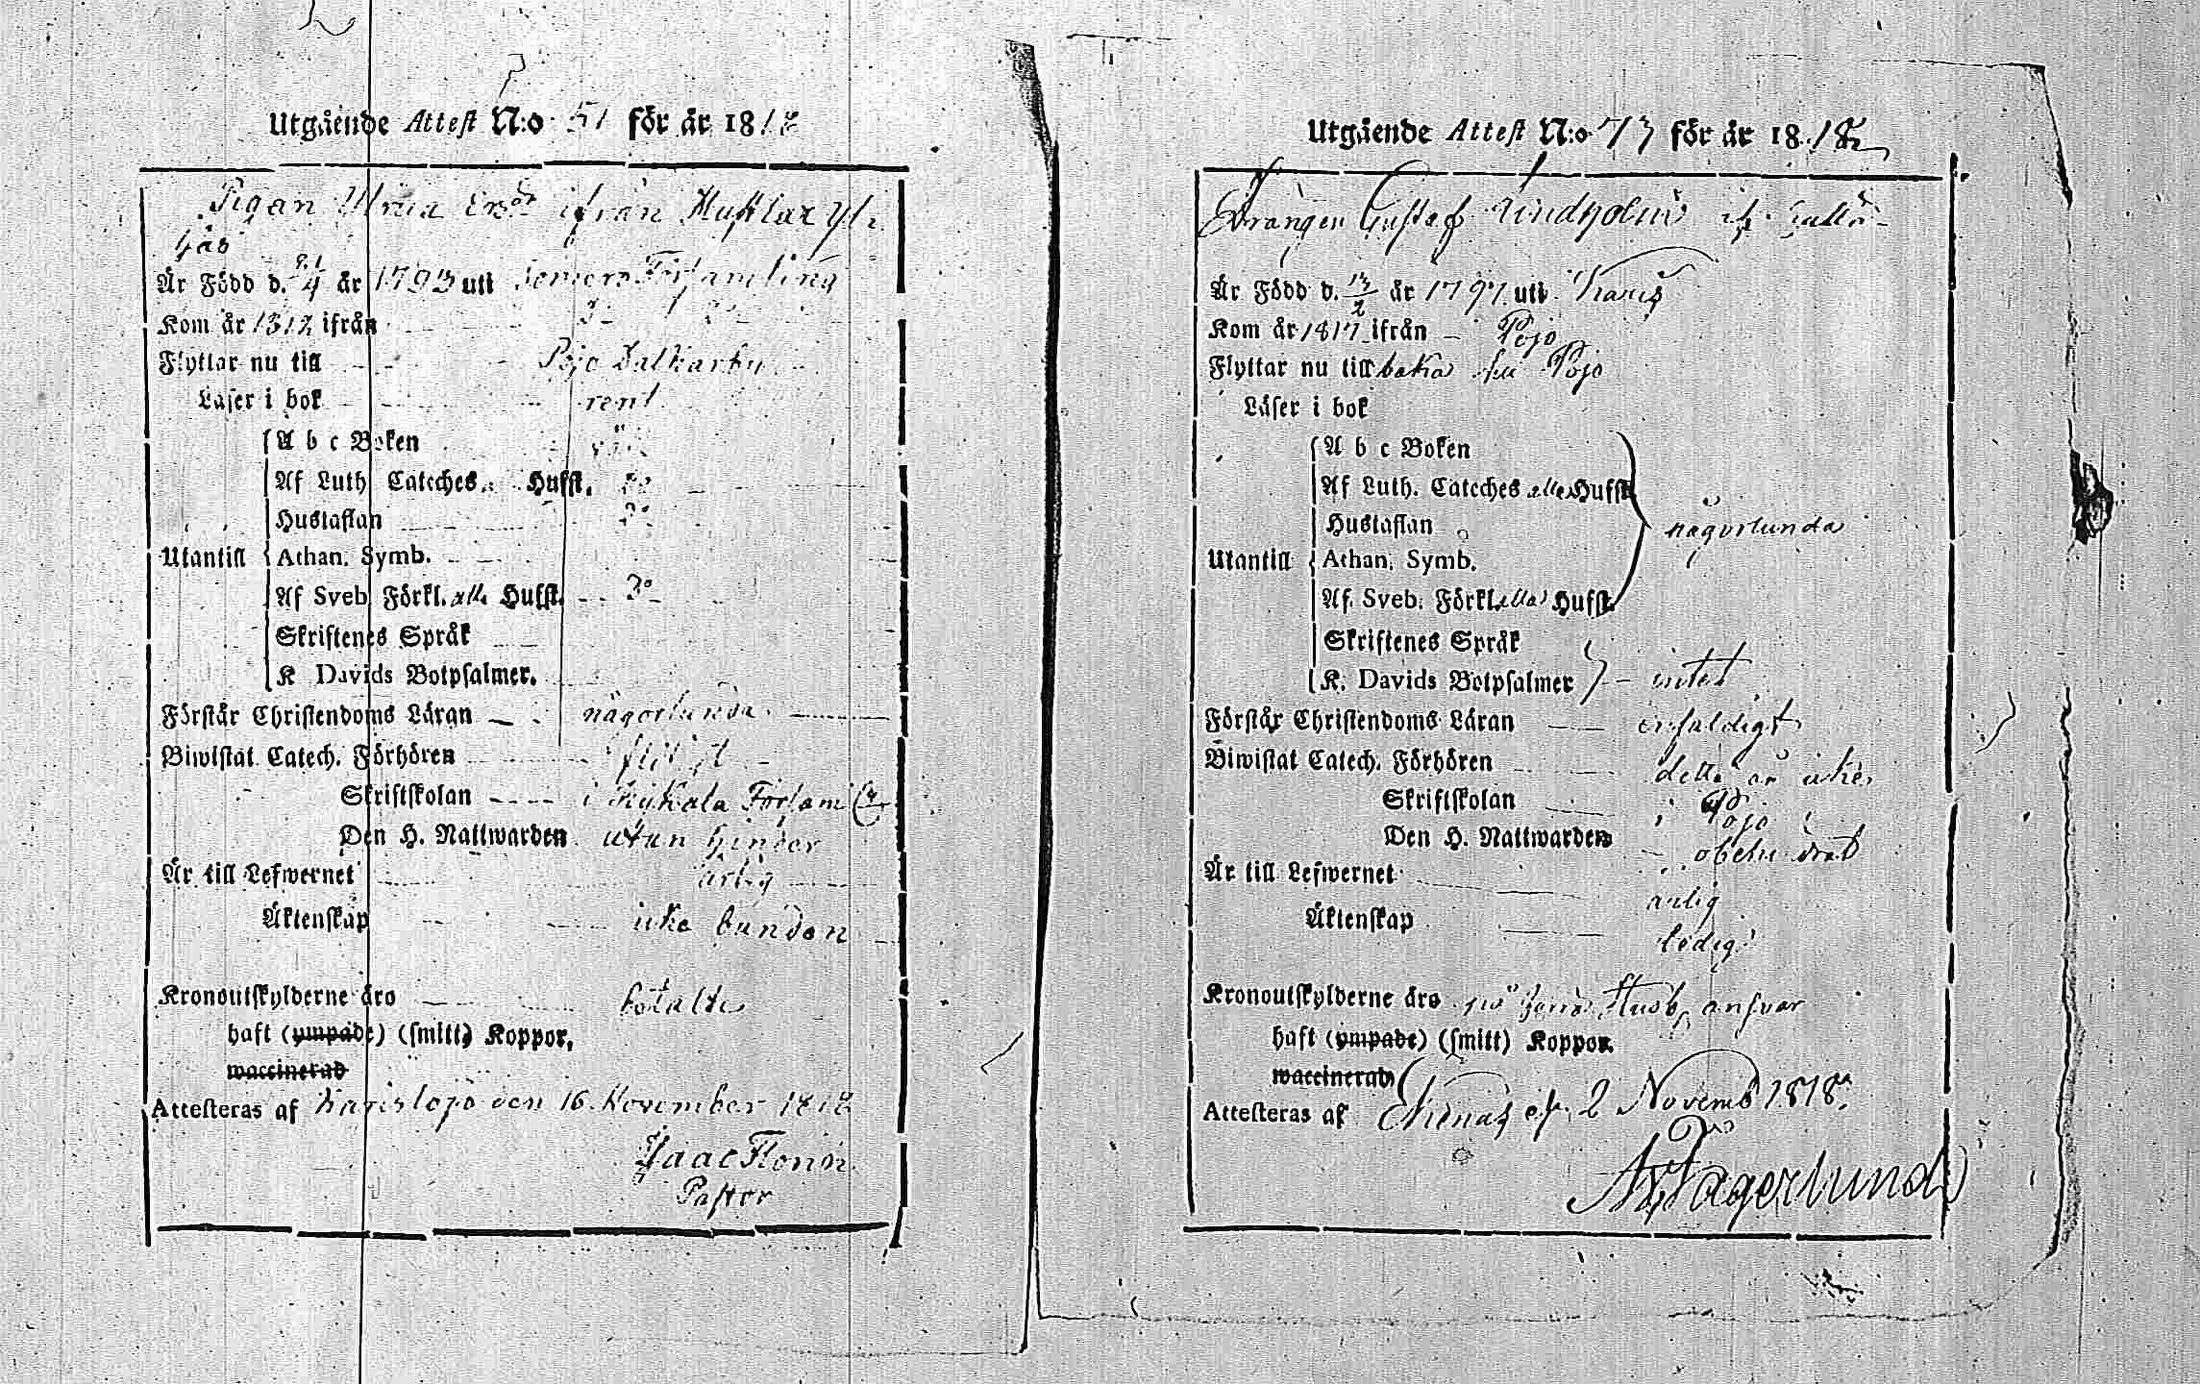 Utgående Attest N:o 51 för år 1818
Pigan Ulrica Ersdr ifrån
Är Född d. 21/4 år 1793 uti Somero Församling
Kom år 1812 ifrån
Flyttar nu till Pojo
Läser i bok rent
A b c Boken
Af Luth. Cateches. Hufst. do
Hustaflan do
Utantill Athan. Symb.
Af Sveb. Förkl. alla Hufst. do
Skriftenes Språk
K Davids Botpsalmer.
Förstår Christendoms Läran någorlunda
Biwistat Catech. Förhören flitigt
Skriftskolan i Kiikala Församl
Den H. Nattwarden utan hinder
Är till Lefwernet ärlig
Äktenskap icke bunden
Kronoutskylderne äro betalte
haft (ympade) (smitt) Koppor,
waccinerad
Attesteras af Karislojo den 16 November 1818
Isaac Florin
Pastor
Utgående Attest N:o 73 för år 1818
Drängen Gustaf Lindholm
Är Född d. 13/2 år 1797 uti Karis
Kom år 1817 ifrån Pojo
Flyttar nu till baka till Pojo
Läser i bok
A b c Boken
Af Luth. Cateches alla Hufst.
Hustaflan någorlunda
Utantill Athan. Symb.
Af Sveb. Förkl. alla Hufst.
Skriftenes Språk
K. Davids Botpsalmer intet
Förstår Christendoms Läran enfaldigt
Biwistat Catech. Förhören detta år icke
Skriftskolan i Pojo
Den H. Nattwarden obehindrad
Är till Lefwernet ärlig
Äktenskap ledig
Kronoutskylderne äro på Husb. ansvar
haft (ympade) (smitt) Koppor.
waccinerad
Attesteras af Ekenäs 2 Novemb 1818.
Fagerlund